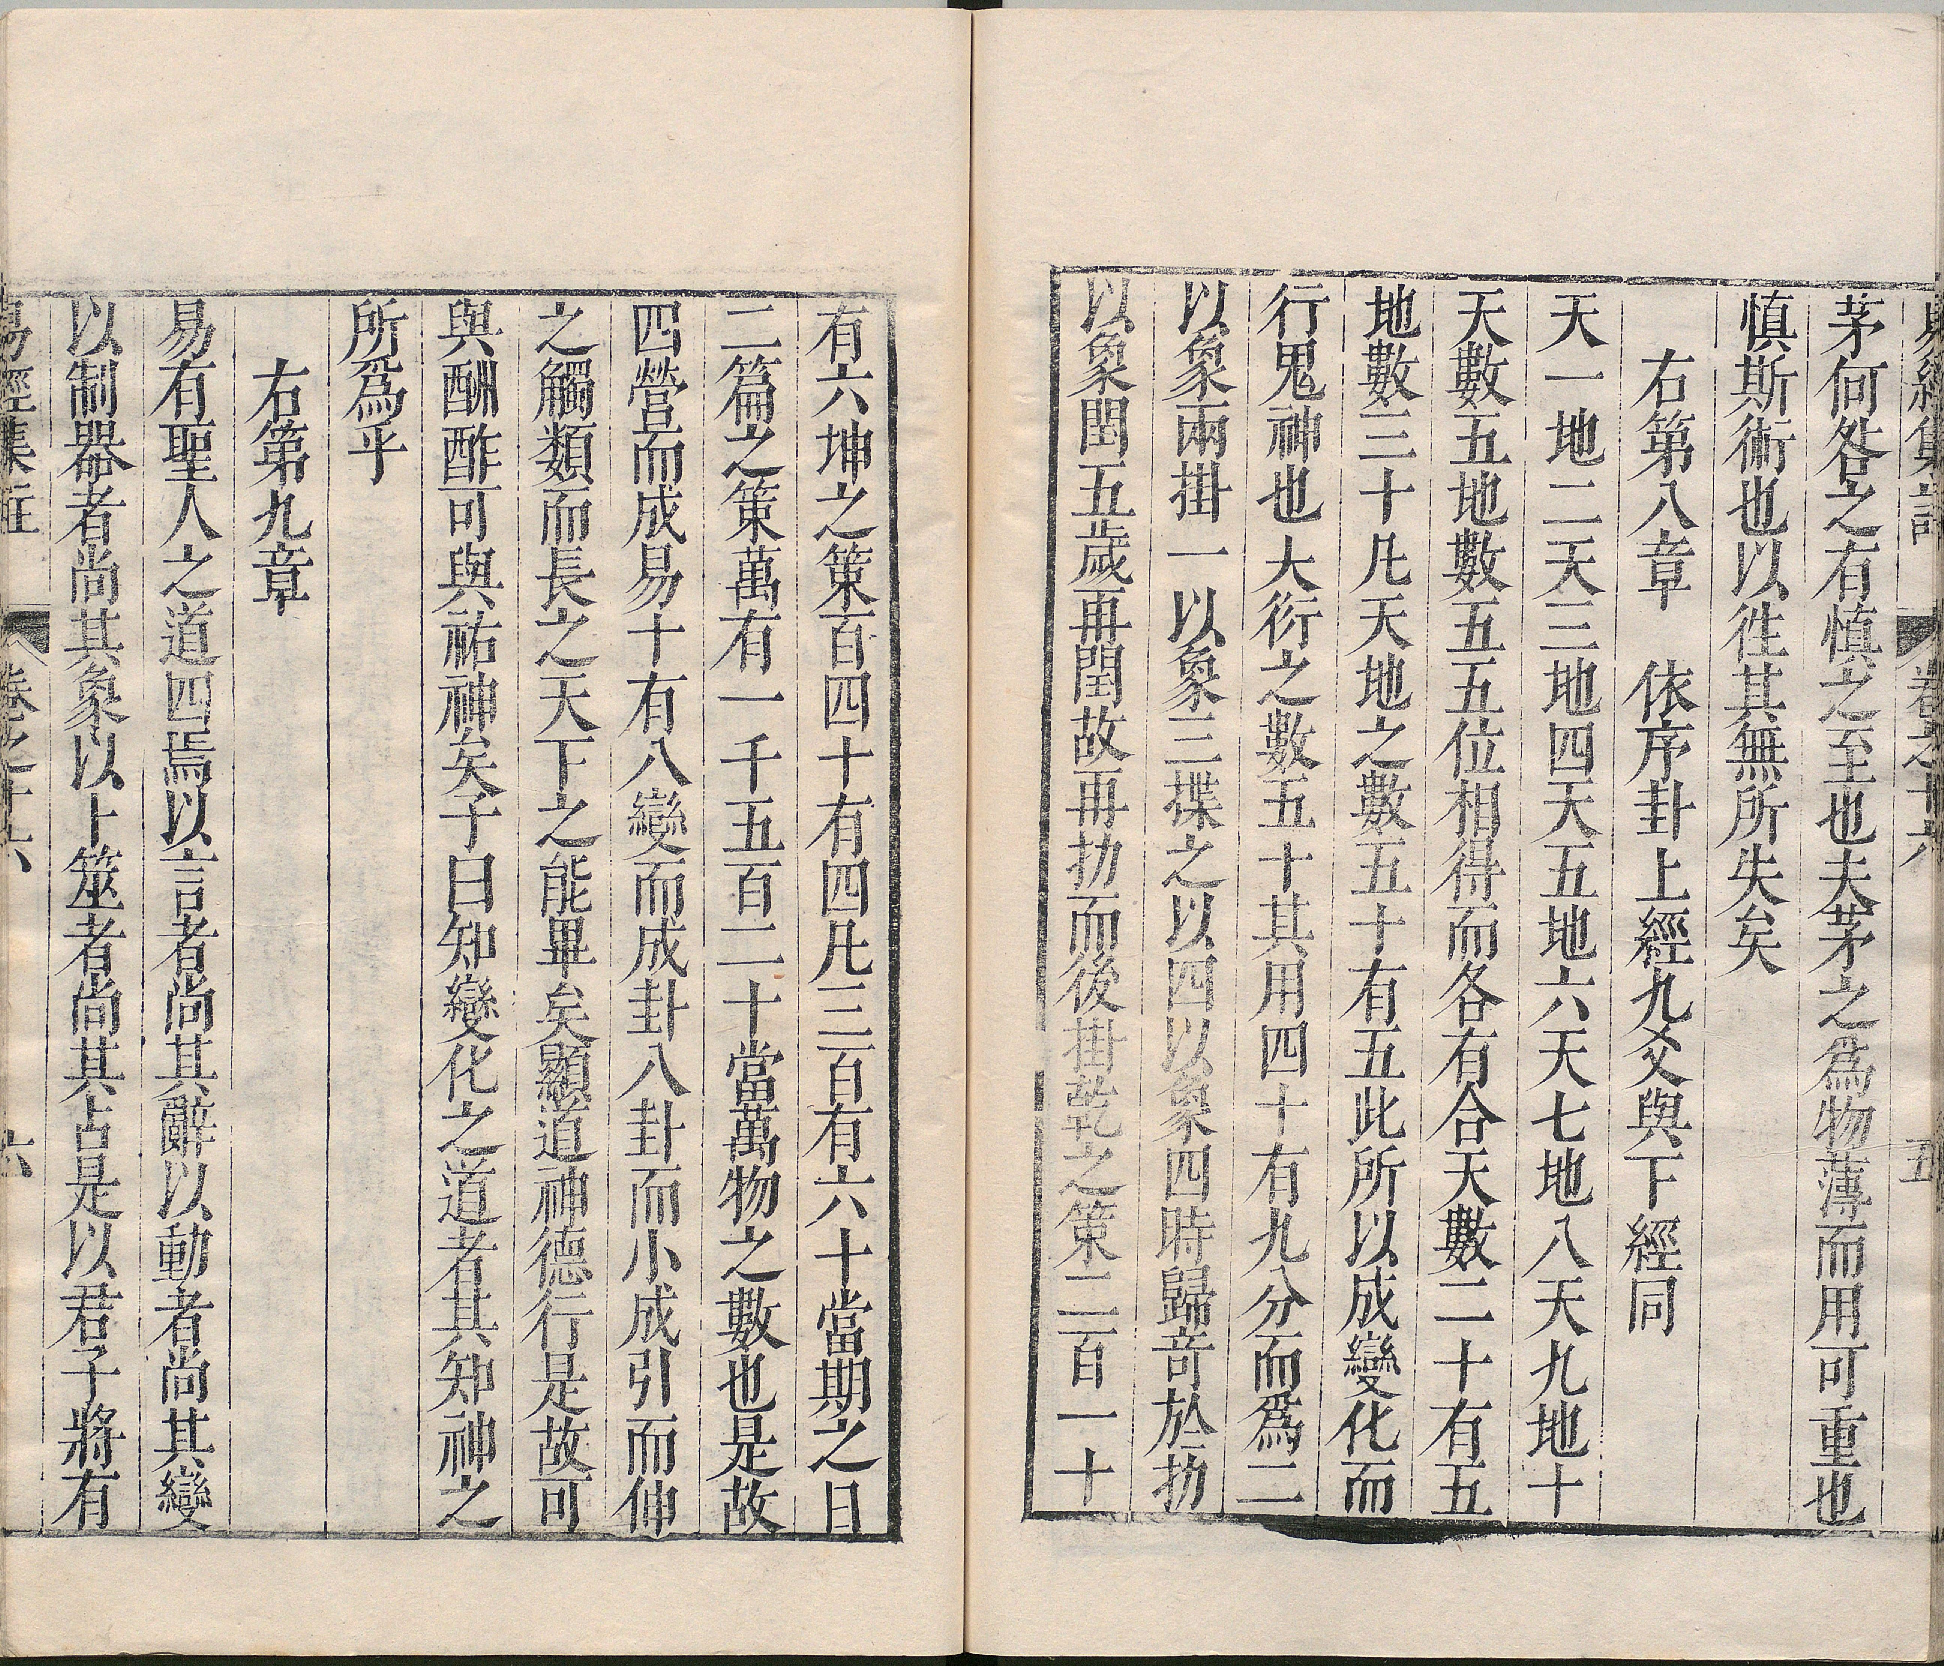 易經集註 卷之十六 五
茅何咎之有慎之至也夫茅之爲物薄而用可重也
慎斯術也以徃其無所失矣
右第八章 依序卦上經九爻與下經同
天一地二天三地四天五地六天七地八天九地十
天數五地數五五位相得而各有合天數二十有五
地數三十凡天地之數五十有五此所以成變化而
行鬼神也大衍之數五十其用四十有九分而爲二
以象兩掛一以象三揲之以四以象四時歸奇於扐
以象閏五歲再閏故再扐而後掛乾之策二百一十
有六坤之策百四十有四凡三百有六十當期之日
二篇之策萬有一千五百二十當萬物之數也是故
四營而成易十有八變而成卦八卦而小成引而伸
之觸類而長之天下之能畢矣顯道神德行是故可
與酬酢可與祐神矣子曰知變化之道者其知神之
所爲乎
右第九章
易有聖人之道四焉以言者尚其辭以動者尚其變
以制器者尚其象以卜筮者尚其占是以君子將有
易經集註 卷之十六 六